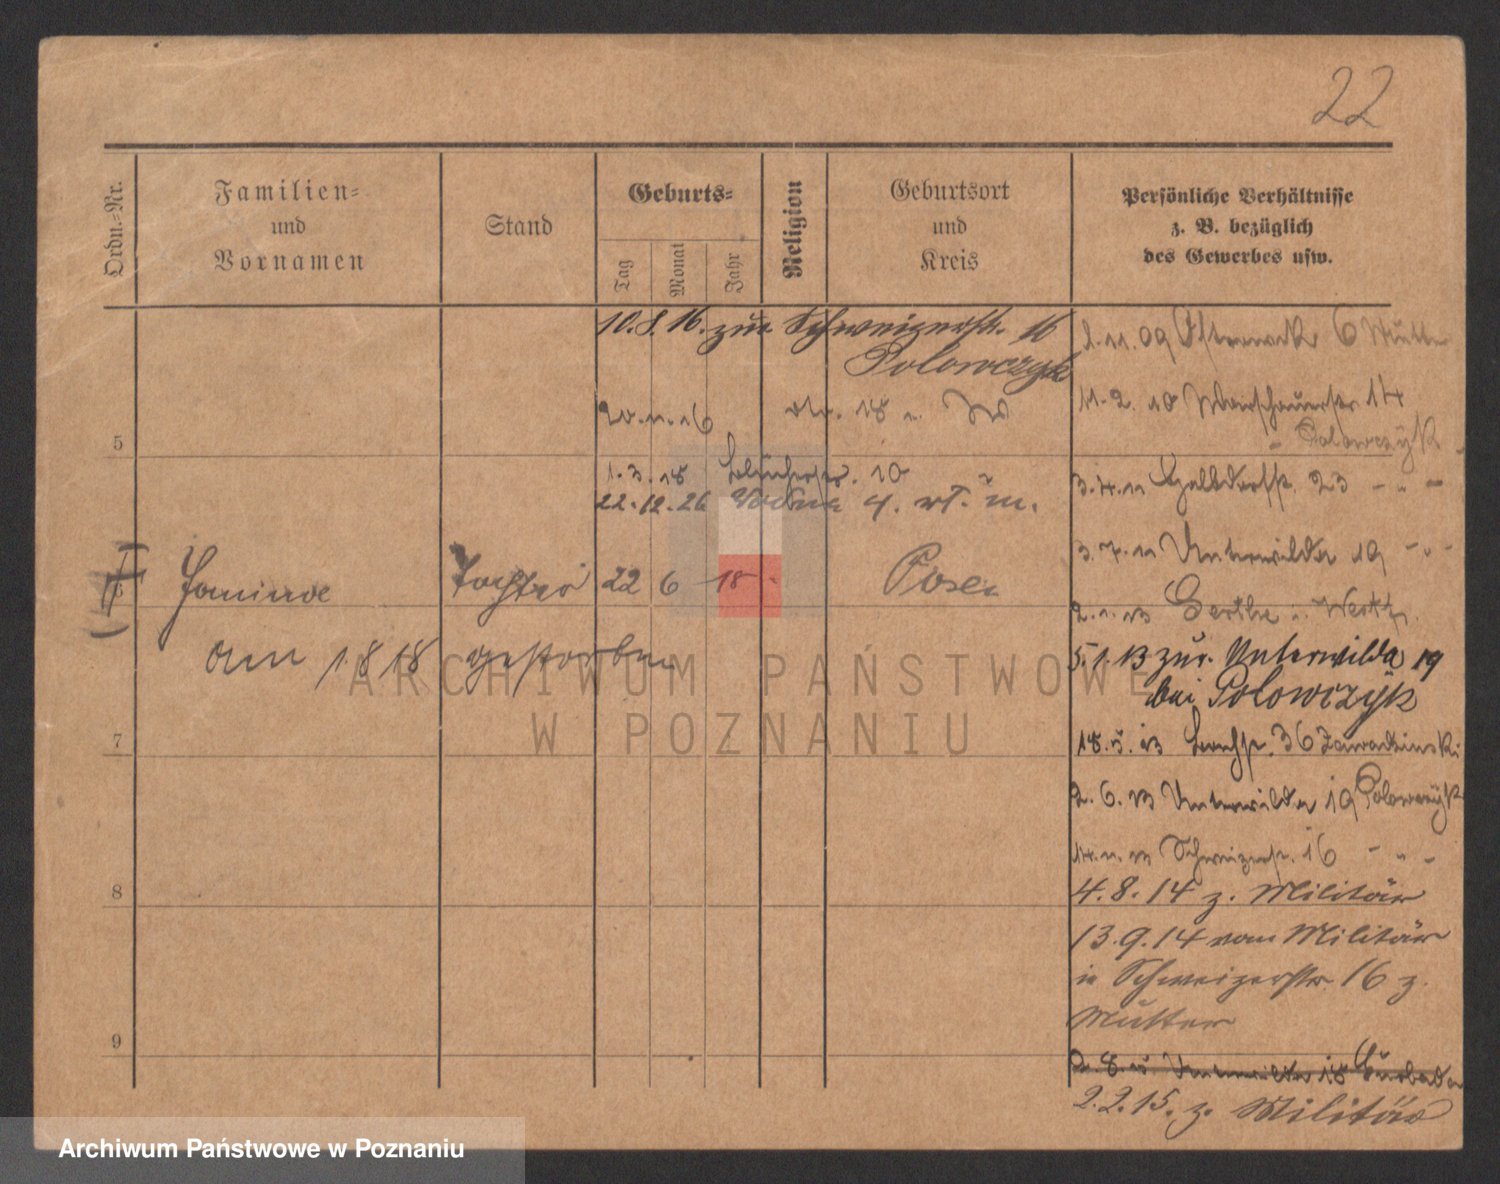 22
Ordn.=Nr.
Familien=
und
Vornamen
Stand
Geburts=
Tag
Monat
Jahr
Religion
Geburtsort
und
Kreis
Persönliche Verhältnisse
z. B. bezüglich
des Gewerbes usw.
10.8.16. zur Schweizerstr. 16
Polowczyk
20.11.16 18
1.3.18 Blücherstr. 10
22.12.26 4.
5
6
Tochter 22 6 18 Posen
am 1.8.18 gestorben
7
8
9
2.11.09 6 Mutter
11.2.10 Warschauerstr. 14
Polowczyk
3.4.11 23 - „ -
3.7.11 Unterwilda 19 - „ -
2.1.13
5.1.13 zur. Unterwilda 19
bei Polowczyk
18.5.13 36 Zawadzinski
2.6.13 Unterwilda 19 Polowczyk
Schweizerstr. 16 - „ -
4.8.14 z. Militär
13.9.14 vom Militär
in Schweizerstr. 16 z.
Mutter
Unterwilda 18
2.2.15. z. Militär
ARCHIWUM PAŃSTWOWE
W POZNANIU
Archiwum Państwowe w Poznaniu